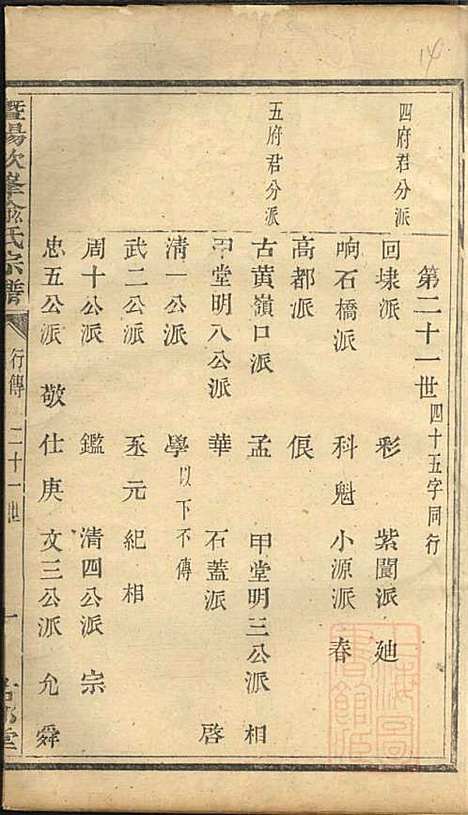 第二十一世 四十五字同行
四府君分派
回埭派 彩 紫閬派 廸
响石橋派 科魁 小源派 春
高都派 倀
五府君分派
古黄嶺口派 孟 甲堂明三公派 相
甲堂明八公派 華 石蓋派 啓
清一公派 學 以下不傳
武二公派 丞元紀相
周十公派 鑑 清四公派 宗
忠五公派 敬仕庚 文三公派 允舜
暨陽次峯俞氏宗譜 行傳 二十一世 一
14